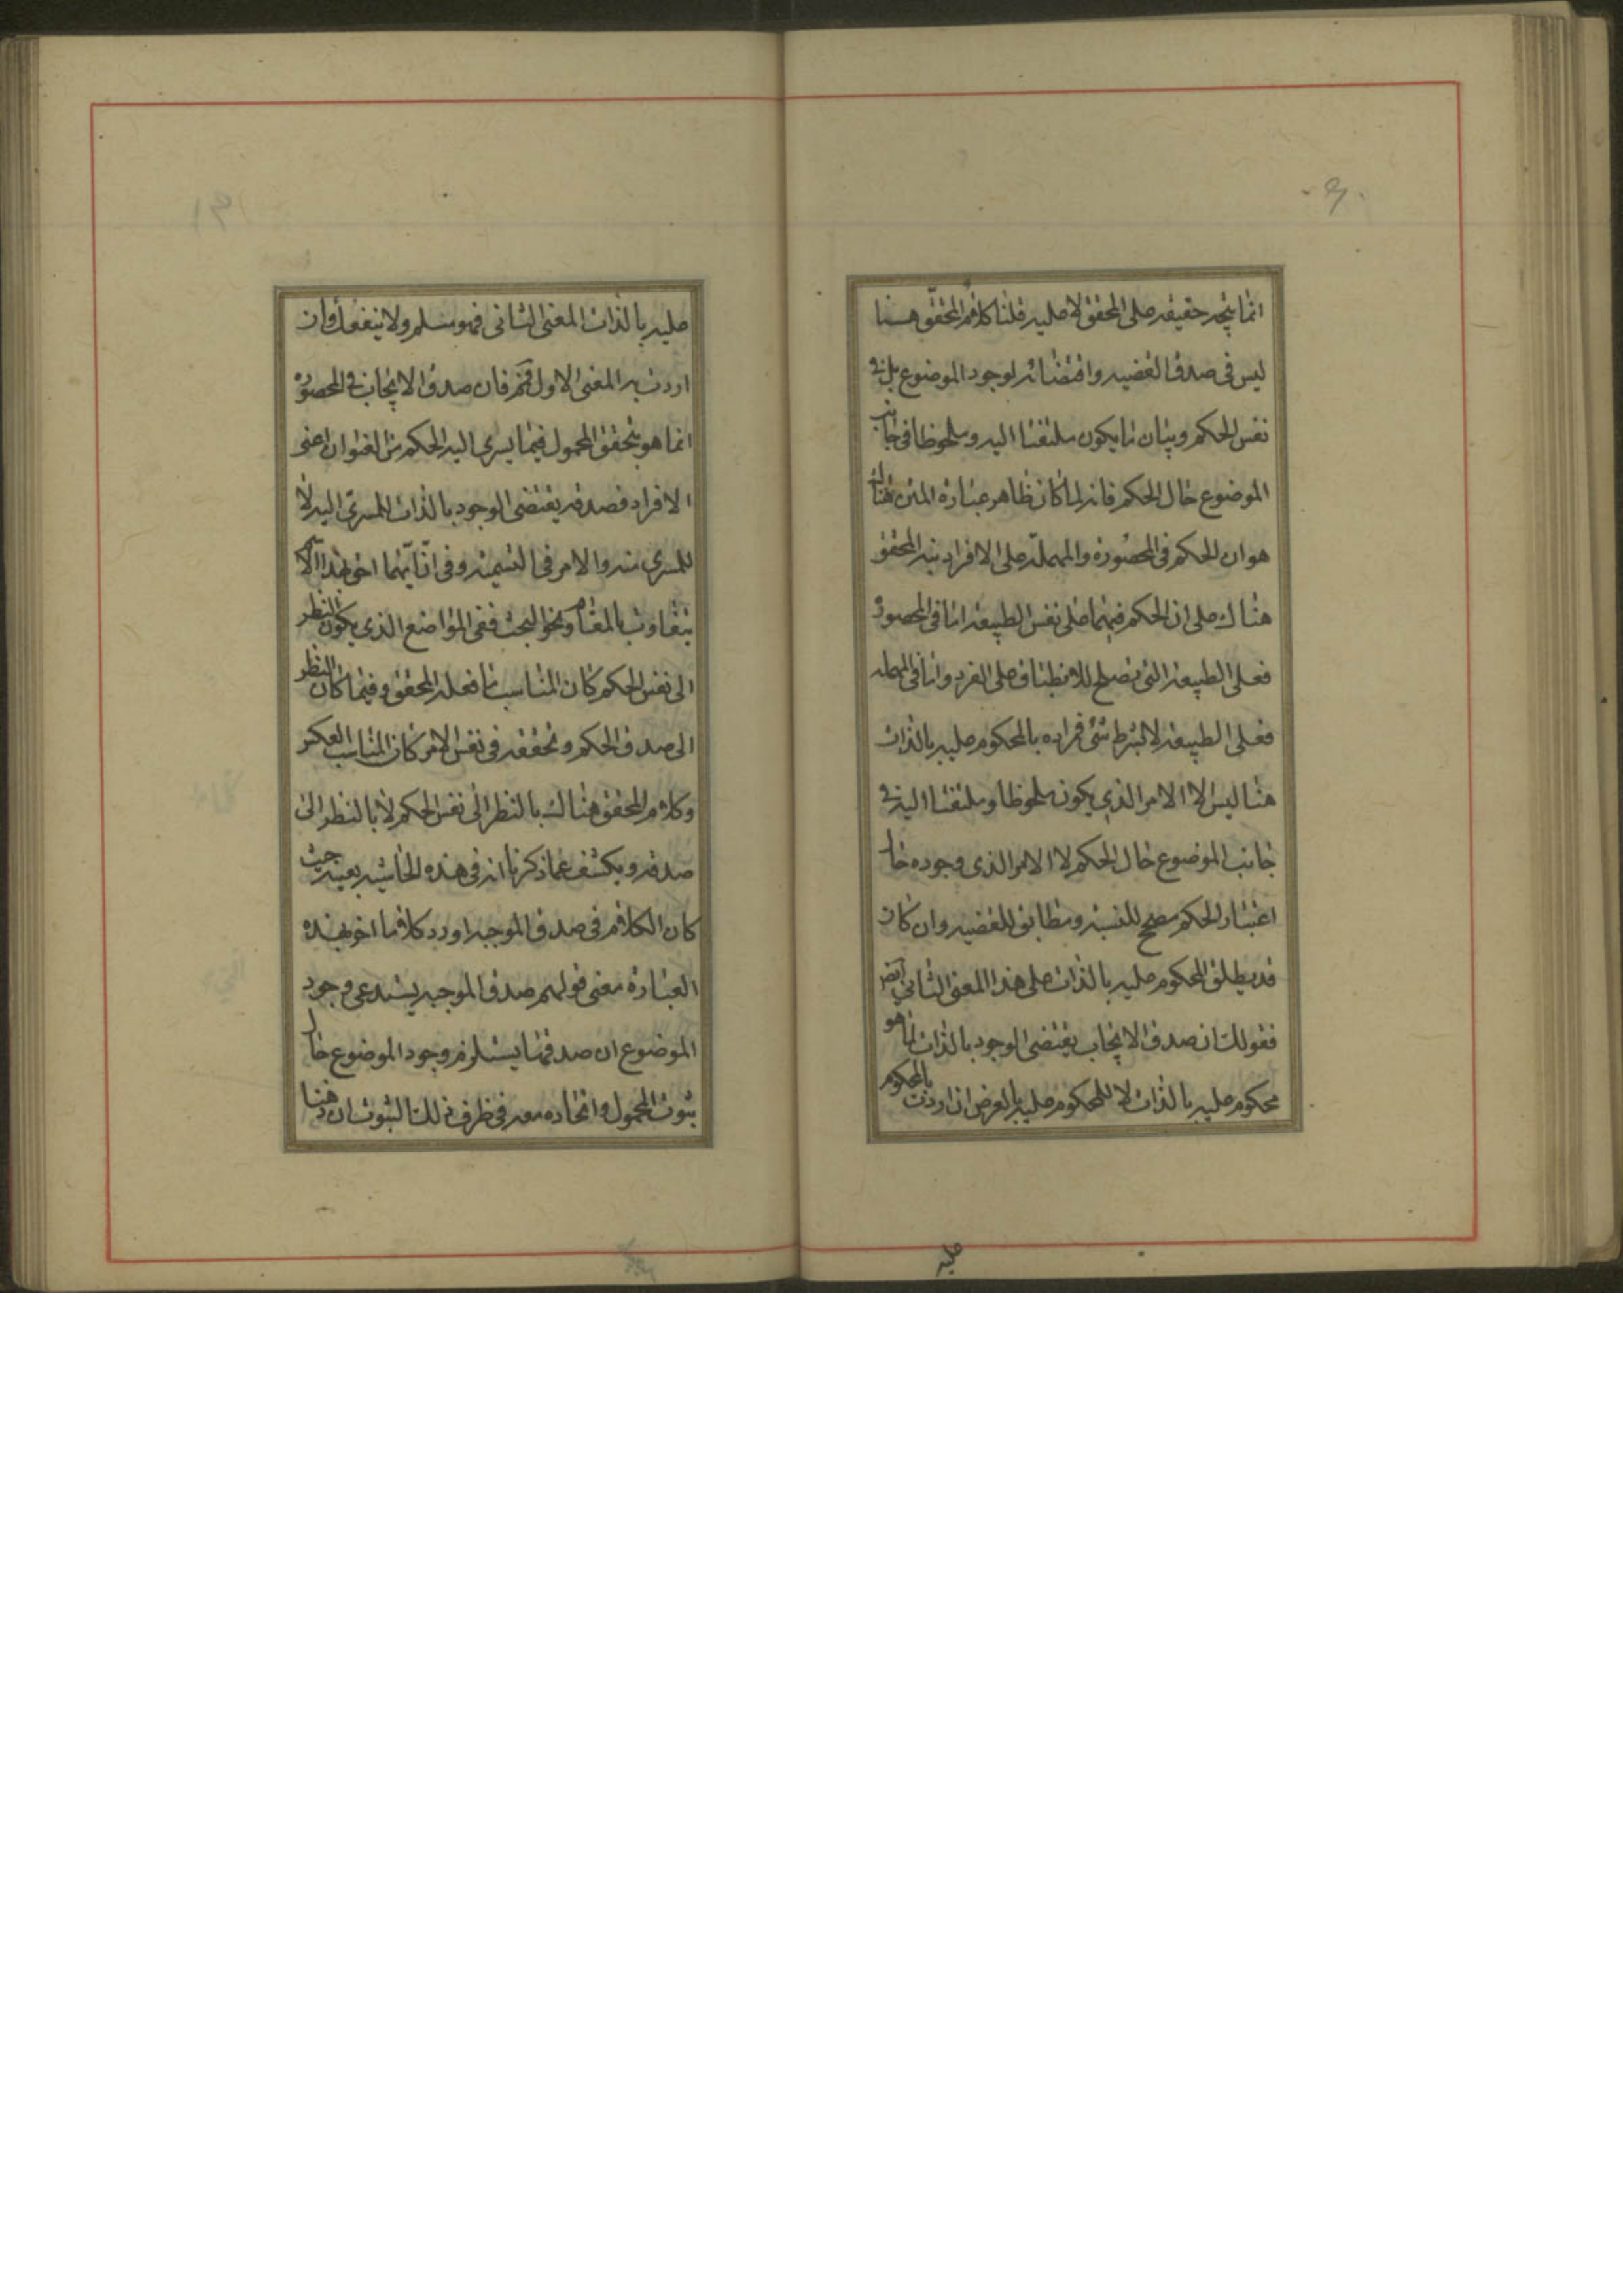 انما يتجه حقيقه على المحقق لا عليه قلنا كلام المحقق هنا
ليس فى صدق القضيه واقتضائه لوجود الموضوع بل فى
نفس الحكم وبيان ما يكون ملتفتا اليه وملحوظا فى جانب
الموضوع حال الحكم فانه لما كان ظاهر عبارة المتن هناك
هو ان الحكم فى المحصورة والمهملة على الافراد نبه المحقق
هناك على ان الحكم فيهما على نفس الطبيعة اما فى المحصورة
فعلى الطبيعة التى تصلح للانطباق على الفرد واما فى المهملة
فعلى الطبيعة لا بشرط شئ فمراده بالمحكوم عليه بالذات
هنا ليس الا الامر الذى يكون ملحوظا وملتفتا اليه فى
جانب الموضوع حال الحكم لا الامر الذى وجوده حال
اعتبار الحكم مصحح للنسبة ومطابق للقضيه وان كان
قد يطلق المحكوم عليه بالذات على هذا المعنى الثانى ايضا
فقولك ان صدق الايجاب يقتضى الوجود بالذات لما هو
محكوم عليه بالذات لا للمحكوم عليه بالعرض ان اردت بالمحكوم
عليه
عليه بالذات المعنى الثانى فهو مسلم ولا ينفعك وان
اردت به المعنى الاول فمم فان صدق الايجاب فى المحصورة
انما هو بتحقق المحمول فيما يسرى اليه الحكم من العنوان اعنى
الافراد فصدقه يقتضى الوجود بالذات للمسرى اليه لا
للمسرى منه والامر فى التسمية وفى ان ايهما احق بهذا الاسم
يتفاوت بالمقام ونحو البحث ففى المواضع الذى يكون النظر
الى نفس الحكم كان المناسب ما فعله المحقق وفيما كان النظر
الى صدق الحكم وتحققه فى نفس الامر كان المناسب العكس
وكلام المحقق هناك بالنظر الى نفس الحكم لا بالنظر الى
صدقه ويكشف عما ذكرنا انه فى هذه الحاشيه بعينه حيث
كان الكلام فى صدق الموجبه اورد كلاما اخر بهذه
العبارة معنى قولهم صدق الموجبه يستدعى وجود
الموضوع ان صدقها يستلزم وجود الموضوع حال
ثبوت المحمول واتحاده معه فى ظرف ذلك الثبوت ان ذهنا